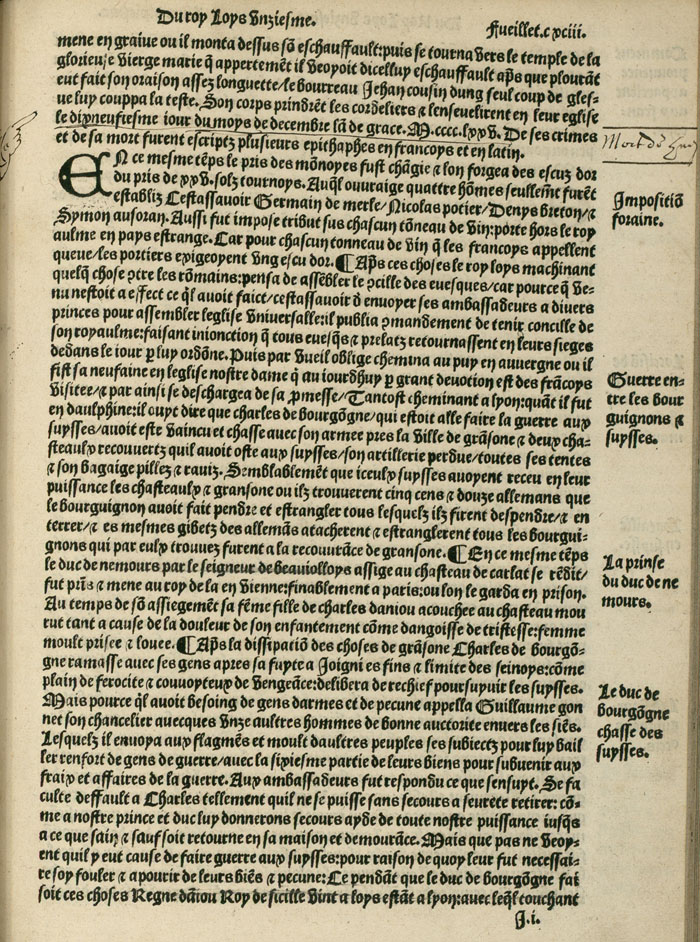 Du roy Loys unziesme.
Fueillet.c xciii.
mene en graive ou il monta dessus sõ eschauffault:puis se tourna vers le temple de la
glorieuse vierge marie q̃ appertemẽt il veoyoit dicelluy eschauffault ap̃s que plourãt
eut fait son oraison assez longuette/le bourreau Jehan cousin dung seul coup de glef-
ve luy couppa la teste. Son corps prindrẽt les cordeliers ⁊ lensevelirent en leur eglise
le dixneufiesme iour du moys de decembre lã de grace. M.cccc.lxxv. De ses crimes
et de sa mort furent escriptz plusieurs epithaphes en francoys et en latin.
Mort du
EN ce mesme tẽps le pris des mõnoyes fust chãgie ⁊ lon forgea des escuz dor
du pris de xxv. solz tournoys. Auq̃l ouvraige quattre hõmes seullemẽt furẽt
establiz Cestassavoir Germain de merle/Nicolas potier/Denys breton/⁊
Symon ausoran. Aussi fut impose tribut sus chascun tõneau de vin:porte hors le roy
aulme en pays estrange. Car pour chascun tonneau de vin q̃ les francoys appellent
queue/les portiers exigeoyent ung escu dor. ¶ Ap̃s ces choses le roy loys machinant
quelq̃ chose ꝯtre les rõmains:pensa de assẽbler le ꝯcille des evesques/car pource q̃ ve-
nu nestoit a effect ce q̃l avoit faict/cestassavoir d envoyer ses ambassadeurs a divers
princes pour assembler leglise universalle:il publia ꝯmandement de tenir concille de
son royaulme:faisant inionction q̃ tous evesq̃s ⁊ prelatz retournassent en leurs sieges
dedans le iour ꝑ luy ordõne. Puis par vueil oblige chemina au puy en auvergne ou il
fist sa neufaine en leglise nostre dame q̃ au iourdhuy ꝑ grant devotion est des frãcoys
visitee/⁊ par ainsi se deschargea de sa ꝓmesse/Tantost cheminant a lyon:quãt il fut
en daulphine:il ouyt dire que charles de bourgõgne/qui estoit alle faire la guerre aux
suysses/avoit este vaincu et chasse avec son armee pres la ville de grãsone ⁊ deux cha-
steaulx recouvertz quil avoit oste aux suysses/son artillerie perdue/toutes ses tentes
⁊ son bagaige pillez ⁊ raviz. Semblablemẽt que iceulx suysses avoyent receu en leur
puissance les chasteaulx ⁊ gransone ou ilz trouverent cinq cens ⁊ douze allemans que
le bourguignon avoit fait pendre et estrangler tous lesquelz ilz firent despendre/⁊ en
terrer/⁊ es mesmes gibetz des allemãs atacherent ⁊ estranglerent tous les bourgui-
gnons qui par eulx trouvez furent a la recouvrãce de gransone. ¶ En ce mesme tẽps
le duc de nemours par le seigneur de beaviolloys assige au chasteau de carlat se rẽdit/
fut prĩs ⁊ mene au roy de la en vienne:finablement a paris:ou lon le garda en prison.
Au temps de sõ assiegemẽt sa fẽme fille de charles daniou acouchee au chasteau mou
rut tant a cause de la douleur de son enfantement cõme dangoisse de tristesse:femme
moult prisee ⁊ louee. ¶ Ap̃s la dissipatiõ des choses de grãsone Charles de bourgõ-
gne ramasse avec ses gens apres sa fuyte a Joigni es fins ⁊ limite des seinoys:cõme
plain de ferocite ⁊ couvoyteux de vengeãce:delibera de rechief poursuyvir les suysses.
Mais pource q̃l avoit besoing de gens darmes et de pecune appella Guillaume gon
net son chancelier avecques unze aultres hommes de bonne auctorite envers les siẽs.
Lesquelz il envoya aux flagmẽs et moult daultres peuples ses subiectz pour luy bail
ler renfort de gens de guerre/avec la sixiesme partie de leurs biens pour subvenir aux
fraix et affaires de la guerre. Aux ambassadeurs fut respondu ce que sensuyt. Se fa
culte deffault a Charles tellement quil ne se puisse sans secours a seurete retirer: cõ-
me a nostre prince et duc luy donnerons secours ayde de toute nostre puissance iusq̃s
a ce que sain ⁊ sauf soit retourne en sa maison et demourãce. Mais que pas ne veoy-
ent quil y eut cause de faire guerre aux suysses:pour raison de quoy leur fut necessai-
re soy fouler ⁊ apourir de leurs biẽs ⁊ pecune:Ce pendãt que le duc de bourgõgne fai
soit ces choses Regne dãiou Roy de sicille vint a loys estãt a lyon:avec leq̃l touchant
J.i.
Impositiõ
foraine.
Guerre en-
tre les bour
guignons ⁊
suysses.
La prinse
du duc de ne
mours.
Le duc de
bourgõgne
chasse des
suysses.